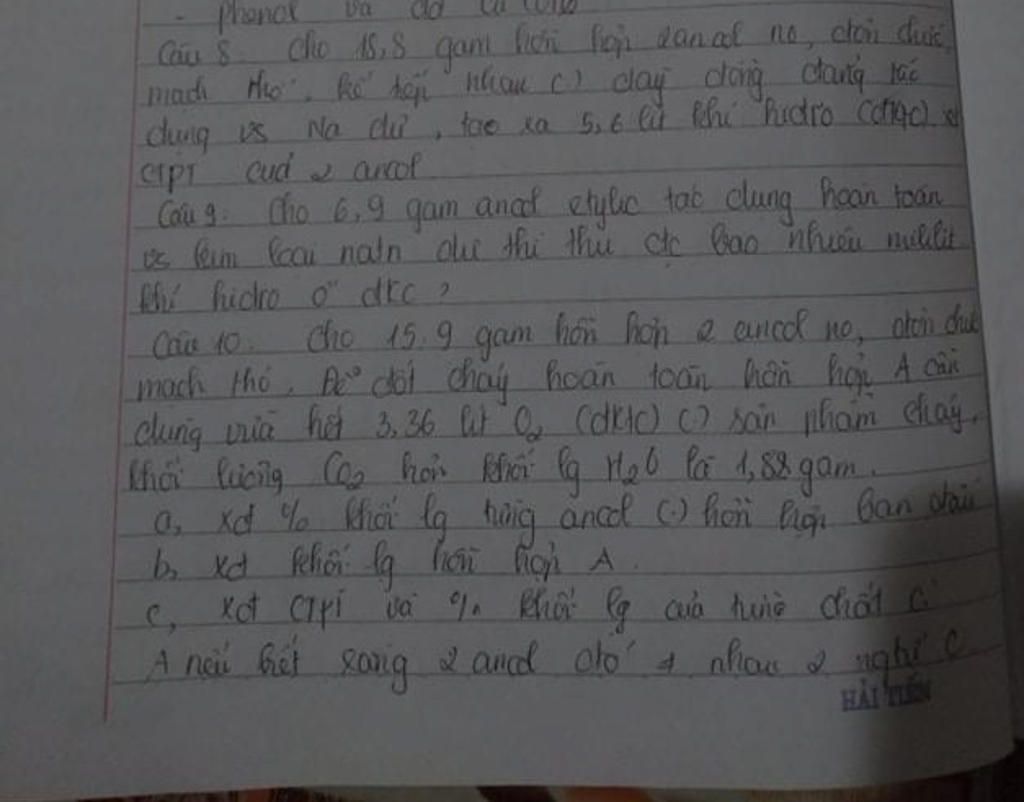 - phenol và dd
Câu 8. Cho 15,8 gam hỗn hợp 2 ancol no, đơn chức,
mạch hở, kế tiếp nhau (.) dãy đồng đẳng tác
dụng vs Na dư, tạo ra 5,6 lít khí hidro (đktc) xđ
CTPT của 2 ancol
Câu 9: Cho 6,9 gam ancol etylic tác dụng hoàn toàn
vs kim loại natri dư thì thu đc bao nhiêu mililit
khí hidro ở đktc ?
Câu 10. Cho 15.9 gam hỗn hợp 2 ancol no, đơn chức
mạch hở. Để đốt cháy hoàn toàn hỗn hợp A cần
dùng vừa hết 3,36 lít O2 (đktc) (.) sản phẩm cháy,
khối lượng CO2 hơn khối lg H2O là 1,88 gam.
a, xđ % khối lg từng ancol (.) hỗn hợp ban đầu
b, xđ khối lg hỗn hợp A.
c, xđ CTPT và % khối lg của từng chất
A nếu biết rằng 2 ancol đó nhau 2 C
HẢI TIẾN